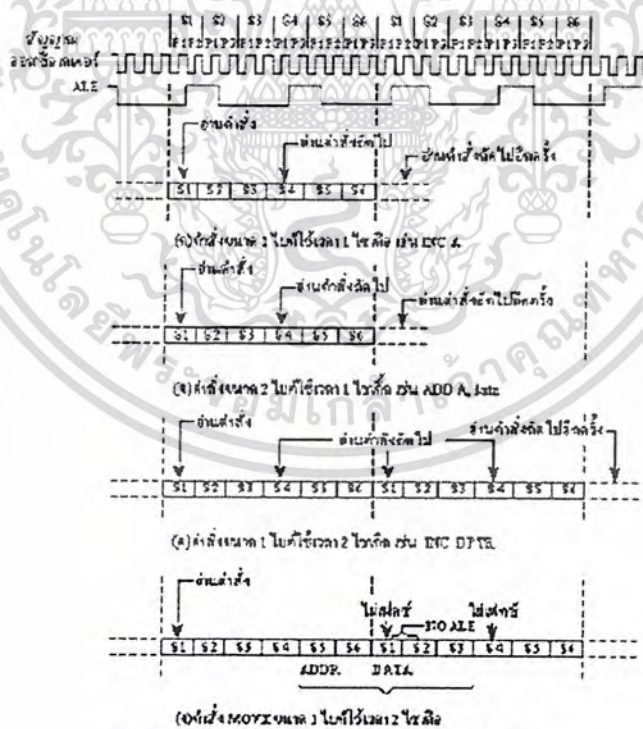 S1 S2 S3 S4 S5 S6 S1 S2 S3 S4 S5 S6
P1P2 P1P2 P1P2 P1P2 P1P2 P1P2 P1P2 P1P2 P1P2 P1P2 P1P2 P1P2
สัญญาณ
ออสซิลเลเตอร์
ALE
อ่านคำสั่ง
อ่านคำสั่งถัดไป
อ่านคำสั่งถัดไปอีกครั้ง
S1 S2 S3 S4 S5 S6
(ก) คำสั่งขนาด 1 ไบต์ใช้เวลา 1 ไซเกิล เช่น INC A
อ่านคำสั่ง
อ่านคำสั่งถัดไป
อ่านคำสั่งถัดไปอีกครั้ง
S1 S2 S3 S4 S5 S6
(ข) คำสั่งขนาด 2 ไบต์ใช้เวลา 1 ไซเกิล เช่น ADD A, data
อ่านคำสั่ง
อ่านคำสั่งถัดไป
อ่านคำสั่งถัดไปอีกครั้ง
S1 S2 S3 S4 S5 S6 S1 S2 S3 S4 S5 S6
(ค) คำสั่งขนาด 1 ไบต์ใช้เวลา 2 ไซเกิล เช่น INC DPTR
อ่านคำสั่ง
ไม่เฟตช์
ไม่เฟตช์
NO ALE
S1 S2 S3 S4 S5 S6 S1 S2 S3 S4 S5 S6
ADDR. DATA
(ง) คำสั่ง MOVX ขนาด 1 ไบต์ใช้เวลา 2 ไซเกิล